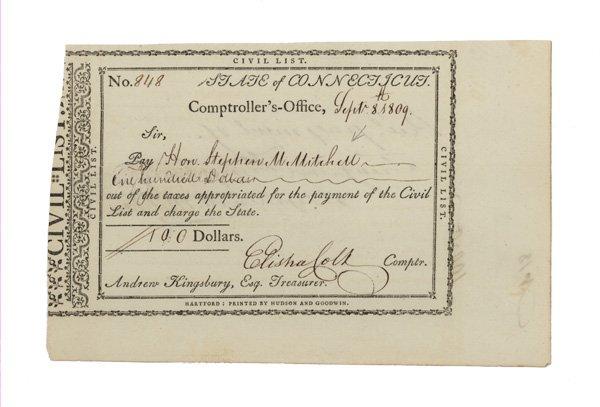 CIVIL LIST.
No. 848 STATE of CONNECTICUT.
Comptroller's-Office, Septr 8th 1809.
Sir,
Pay Hon. Stephen M Mitchell
One hundred Dollars
out of the taxes appropriated for the payment of the Civil
List and charge the State.
100 Dollars.
Elisha Colt Comptr.
Andrew Kingsbury, Esq. Treasurer.
HARTFORD: PRINTED BY HUDSON AND GOODWIN.
CIVIL LIST.
CIVIL LIST.
CIVIL LIST.